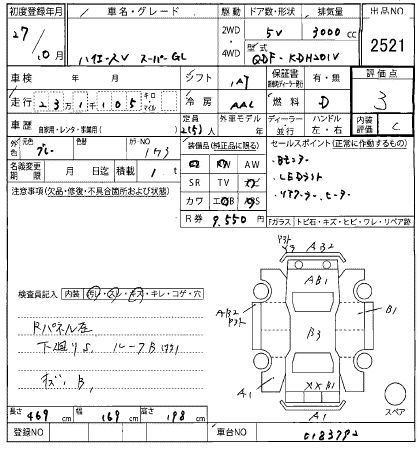 初度登録年月 車名・グレード 駆動 ドア数・形状 排気量 出品NO
27年 10月 ハイエースV スーパーGL 2WD・4WD 5V 3000cc 2521
型式 QDF-KDH201V
車検 年 月 シフト IAT 保証書 有・無 評価点 3
走行 23万1千105 キロ・マイル 冷房 AAC 燃料 D
車歴 自家用・レンタ・事業用( ) 定員 2(5)人 外車モデル ディーラー・並行 ハンドル 左・右 内装評価 C
外色 元色 グレー 色替 カラーNO 1フ3
装備品(純正品に限る) セールスポイント(正常に作動するもの)
名義変更期限 月 日迄 積載 1t
AW
SR TV
カワ
Bモニター
LEDライト
リアクーラー、ヒーター
R券 9,550円
注意事項(欠品・修復・不具合箇所および状態)
「ガラス」トビ石・キズ・ヒビ・ワレ・リペア跡
検査員記入 内装 汚レ・スレ・キズ・キレ・コゲ・穴
Rパネル歪
下廻りS、ルーフB
キズ、B、
AB2
AB1
AB2
B3
B1
A1
XXB1
A1
スペア
長さ 469cm 幅 169cm 高さ 198cm
登録NO 車台NO 0183792